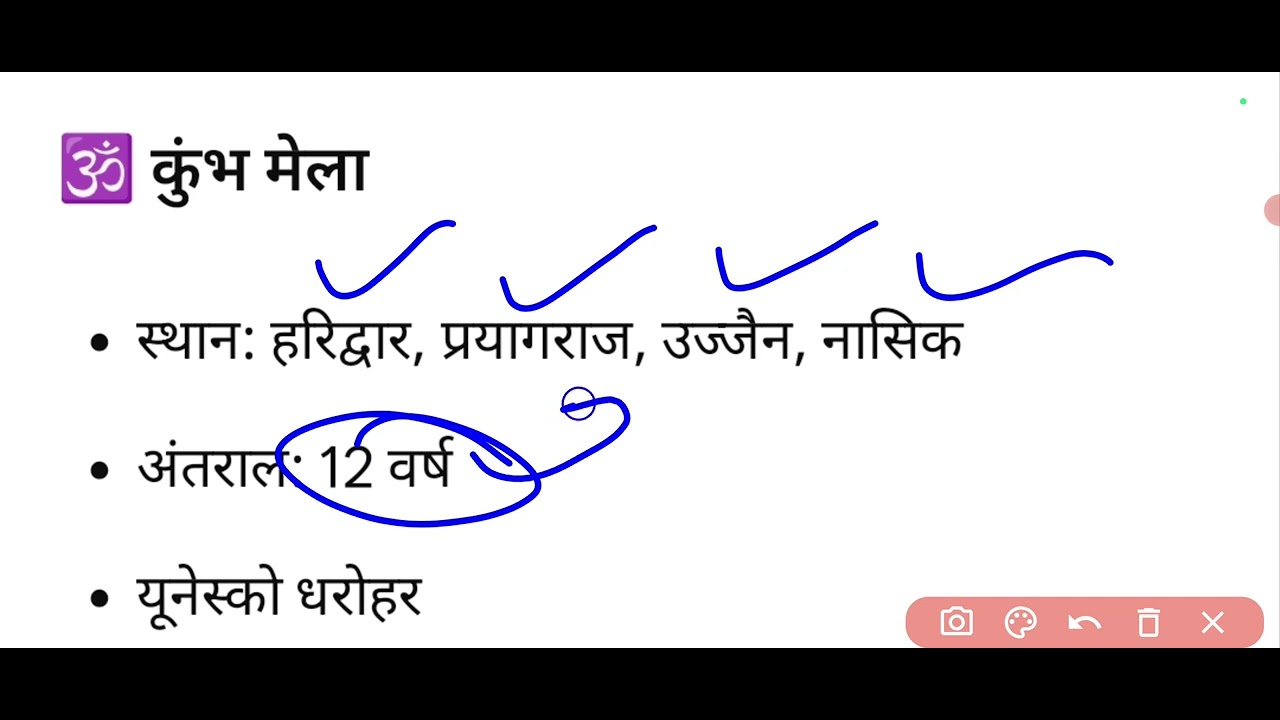 🕉 कुंभ मेला
• स्थान: हरिद्वार, प्रयागराज, उज्जैन, नासिक
• अंतराल: 12 वर्ष
• यूनेस्को धरोहर